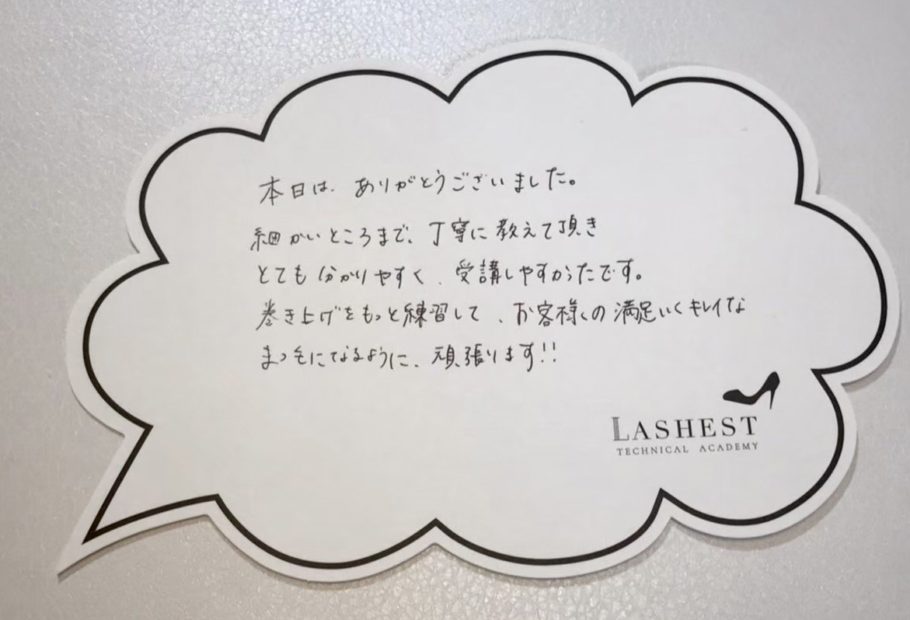 本日は、ありがとうございました。
細かいところまで、丁寧に教えて頂き
とても分かりやすく、受講しやすかったです。
巻き上げをもっと練習して、お客様の満足いくキレイな
まつモになるように、頑張ります!!
LASHEST
TECHNICAL ACADEMY